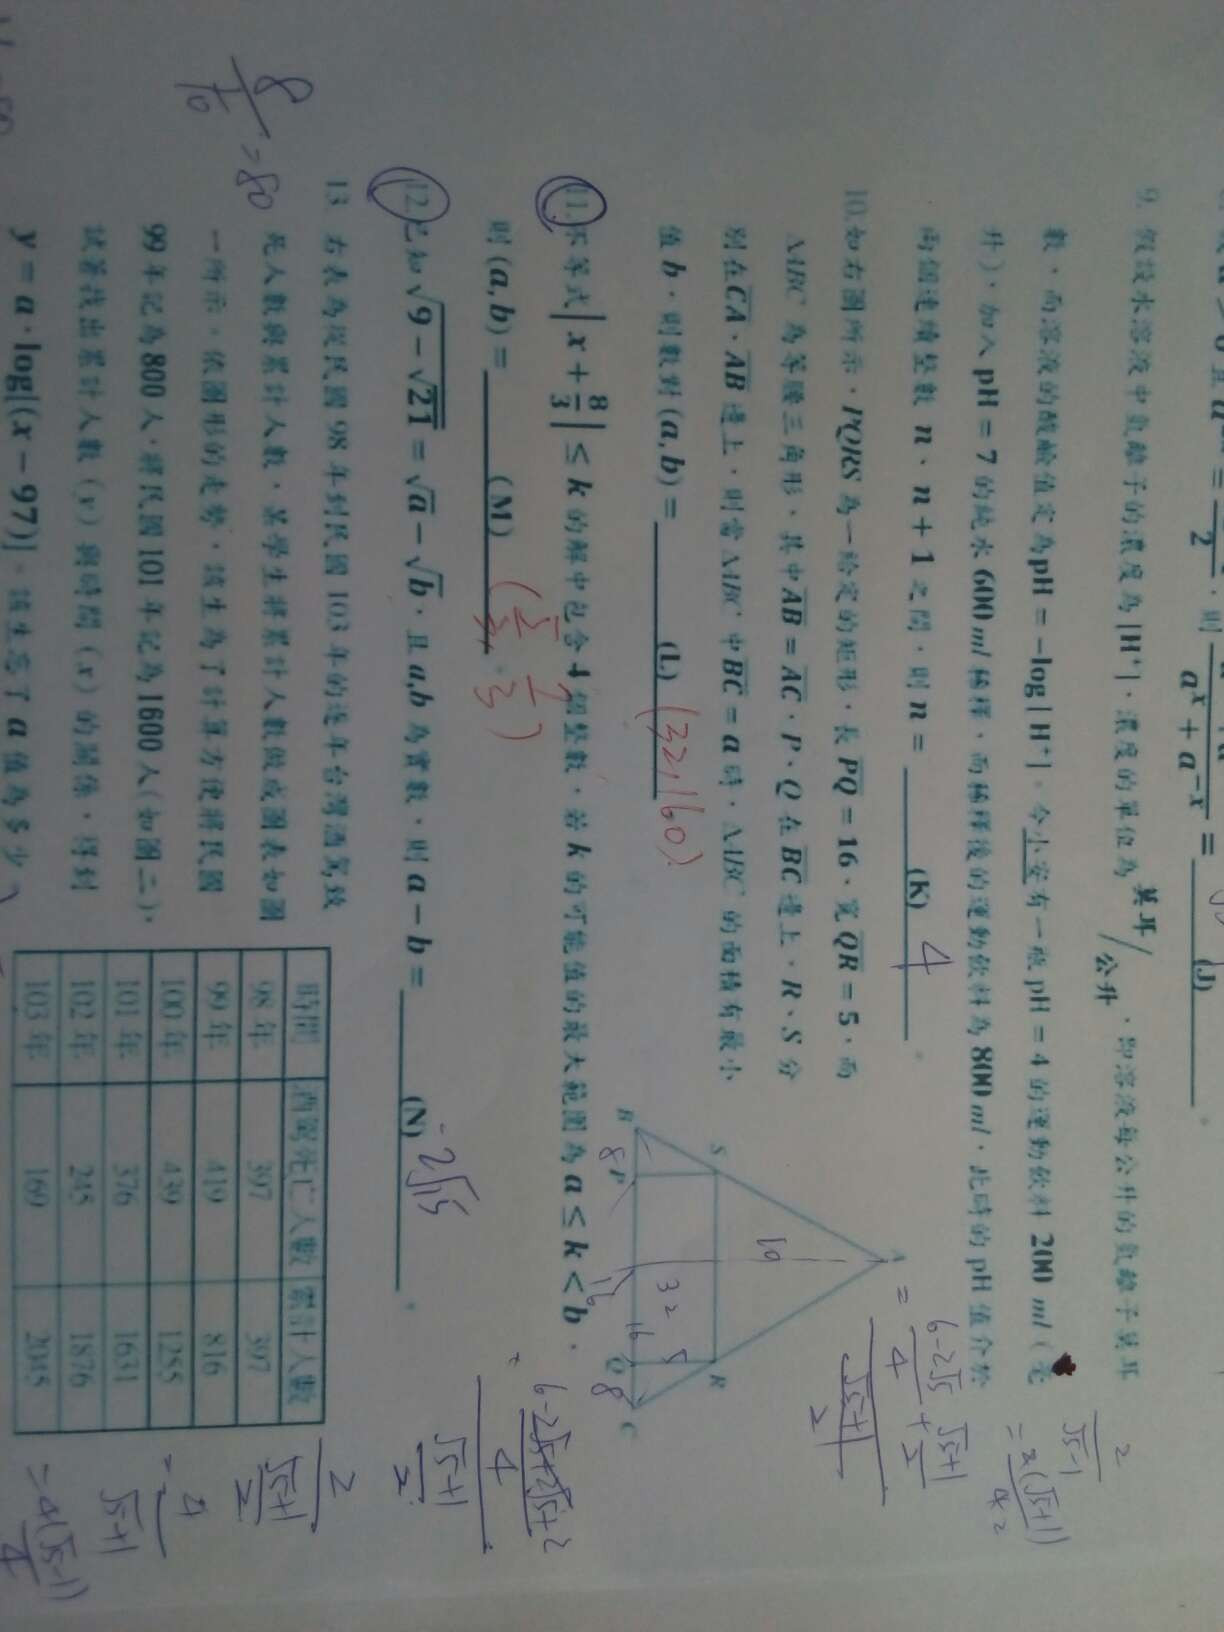 2
a^x + a^{-x}
=
(J)
9. 假設水溶液中氫離子的濃度為[H⁺],濃度的單位為 莫耳/公升,即溶液每公升的氫離子莫耳
數,而溶液的酸鹼值定為pH = −log[H⁺]。今小安有一瓶 pH = 4 的運動飲料 200 ml(毫
升),加入 pH = 7 的純水 600 ml 稀釋,而稀釋後的運動飲料為 800 ml,此時的 pH 值介於
兩個連續整數 n、n + 1 之間,則 n = (K) 4 。
10.如右圖所示,PQRS 為一給定的矩形,長 PQ = 16,寬 QR = 5,而
ΔABC 為等腰三角形,其中 AB = AC,P、Q 在 BC 邊上,R、S 分
別在 CA、AB 邊上,則當 ΔABC 中 BC = a 時,ΔABC 的面積有最小
值 b,則數對 (a, b) = (L) (32,160)
A
S
R
B
P
Q
C
10
32
5
8
16
16
8
11.不等式 | x + 8/3 | ≤ k 的解中包含 4 個整數,若 k 的可能值的最大範圍為 a ≤ k < b,
則 (a, b) = (M) (5/3, 7/3)
12.已知 √(9 − √21) = √a − √b,且 a,b 為實數,則 a − b = (N) -2√15 。
13. 右表為從民國 98 年到民國 103 年的逐年台灣酒駕致
死人數與累計人數,某學生將累計人數做成圖表如圖
一所示。依圖形的走勢,該生為了計算方便將民國
99 年記為 800 人,將民國 101 年記為 1600 人(如圖二),
試著找出累計人數(y)與時間(x)的關係,得到
y = a · log[(x − 97)]。該生忘了 a 值為多少
時間 酒駕死亡人數 累計人數
98 年 397 397
99 年 419 816
100 年 439 1255
101 年 376 1631
102 年 245 1876
103 年 169 2045
8/10 = 80
2
√5-1
= 2(√5+1)
= 6-2√5/4 + √5+1/2
√5+1
2
6-2√5+2√5+2
4
√5+1
2
2
√5+1
2
= 4
√5+1
= 4(√5-1)
4